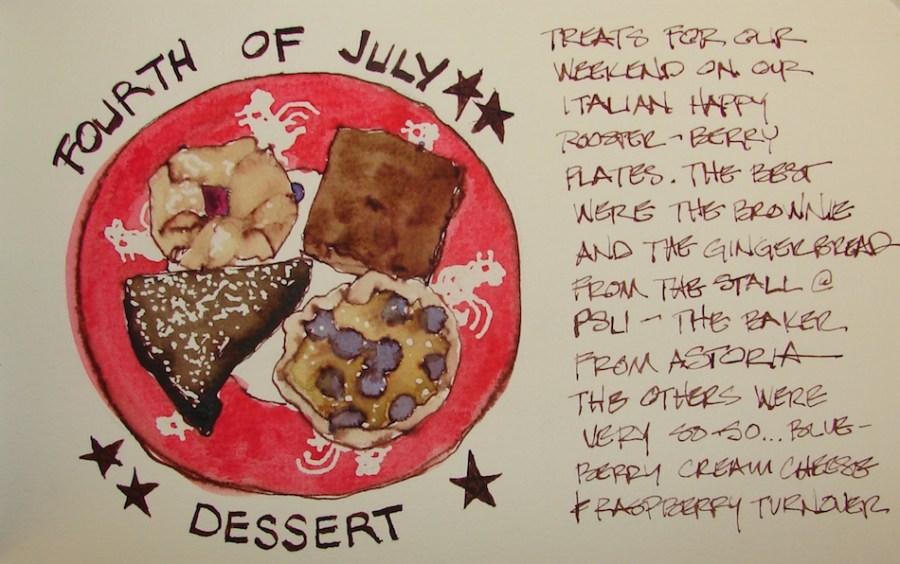 FOURTH OF JULY
DESSERT
TREATS FOR OUR
WEEKEND ON OUR
ITALIAN HAPPY
ROOSTER - BERRY
PLATES. THE BEST
WERE THE BROWNIE
AND THE GINGERBREAD
FROM THE STALL @
PSU - THE BAKER
FROM ASTORIA
THE OTHERS WERE
VERY SO-SO... BLUE-
BERRY CREAM CHEESE
& RASPBERRY TURNOVER